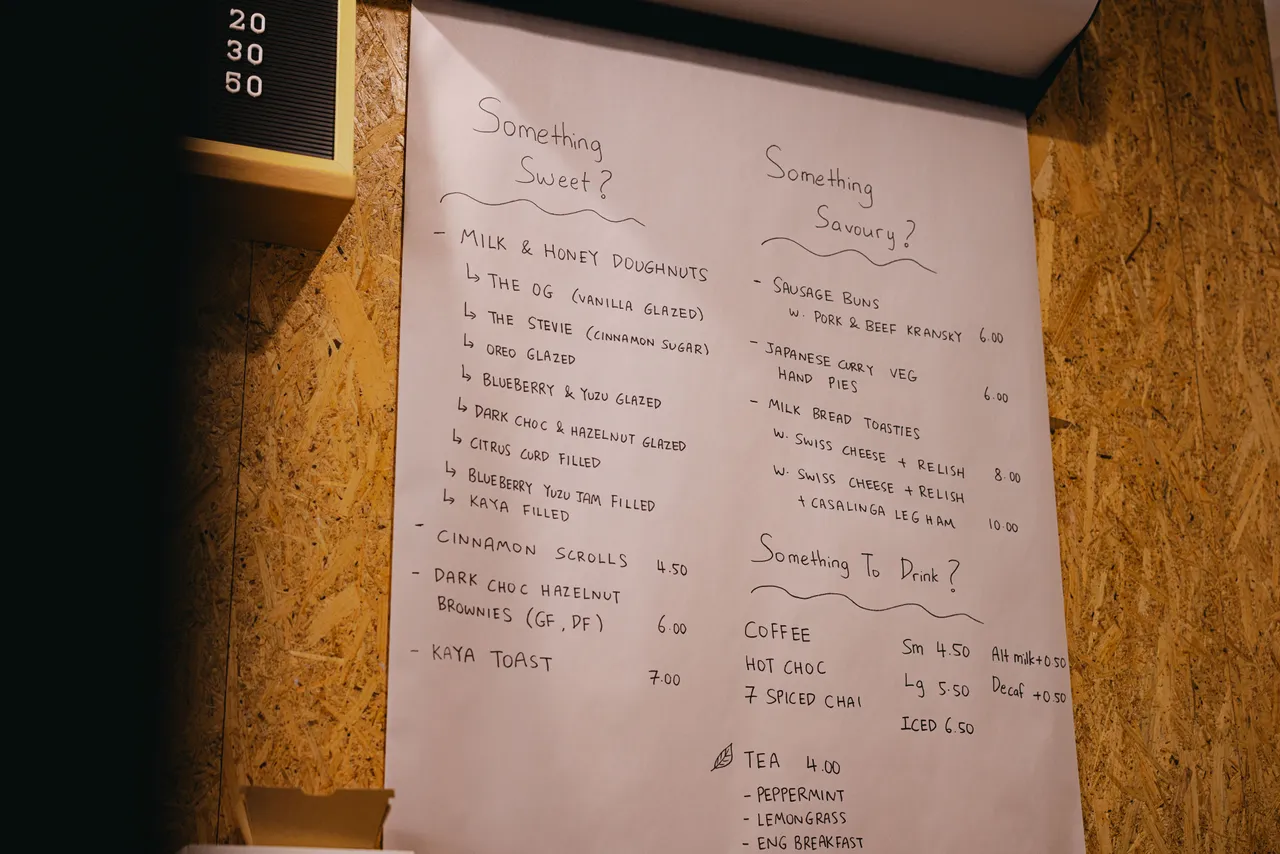 20
30
50
Something
Sweet?
- MILK & HONEY DOUGHNUTS
↳ THE OG (VANILLA GLAZED)
↳ THE STEVIE (CINNAMON SUGAR)
↳ OREO GLAZED
↳ BLUEBERRY & YUZU GLAZED
↳ DARK CHOC & HAZELNUT GLAZED
↳ CITRUS CURD FILLED
↳ BLUEBERRY YUZU JAM FILLED
↳ KAYA FILLED
- CINNAMON SCROLLS 4.50
- DARK CHOC HAZELNUT
BROWNIES (GF, DF) 6.00
- KAYA TOAST 7.00
Something
Savoury?
- SAUSAGE BUNS
W. PORK & BEEF KRANSKY 6.00
- JAPANESE CURRY VEG
HAND PIES 6.00
- MILK BREAD TOASTIES
W. SWISS CHEESE + RELISH 8.00
W. SWISS CHEESE + RELISH
+ CASALINGA LEG HAM 10.00
Something To Drink?
COFFEE Sm 4.50 Alt milk +0.50
HOT CHOC Lg 5.50 Decaf +0.50
7 SPICED CHAI ICED 6.50
TEA 4.00
- PEPPERMINT
- LEMONGRASS
- ENG BREAKFAST